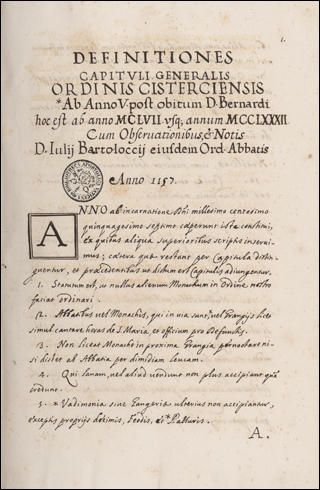 1.
DEFINITIONES
CAPITULI GENERALIS
ORDINIS CISTERCIENSIS
*Ab Anno V. post obitum D. Bernardi
hoc est ab anno MCLVII usq; annum MCCLXXXII
Cum Observationibus, & Notis
D. Iulij Bartoloccij eiusdem Ord. Abbatis
Anno 1157.
ANNO ab incarnatione Dñi millesimo centesimo
quinquagesimo septimo cœperunt ista constitui,
ex quibus aliqua superioribus scriptis inserui-
mus; cætera quæ restant per Capitula distin-
guentur, et præcedentibus ut dictum est Capitulis adiungentur.
1. Statutum est, ut nullus alterum Monachum in Ordine nostro
faciat ordinari.
2. Abbatibus vel Monachis, qui in via sunt, vel Grangijs licet
simul cantare horas de S. Maria, et officium pro Defunctis.
3. Non liceat Monacho in proxima Grangia pernoctare ni-
si distet ab Abbatia per dimidiam leucam.
4. Qui lanam, vel aliud vendunt non plus accipiant
credunt.
5. * Vadimonia sive ulterius non accipiantur,
exceptis proprijs decimis, Feodis, et Pasturis.
A.